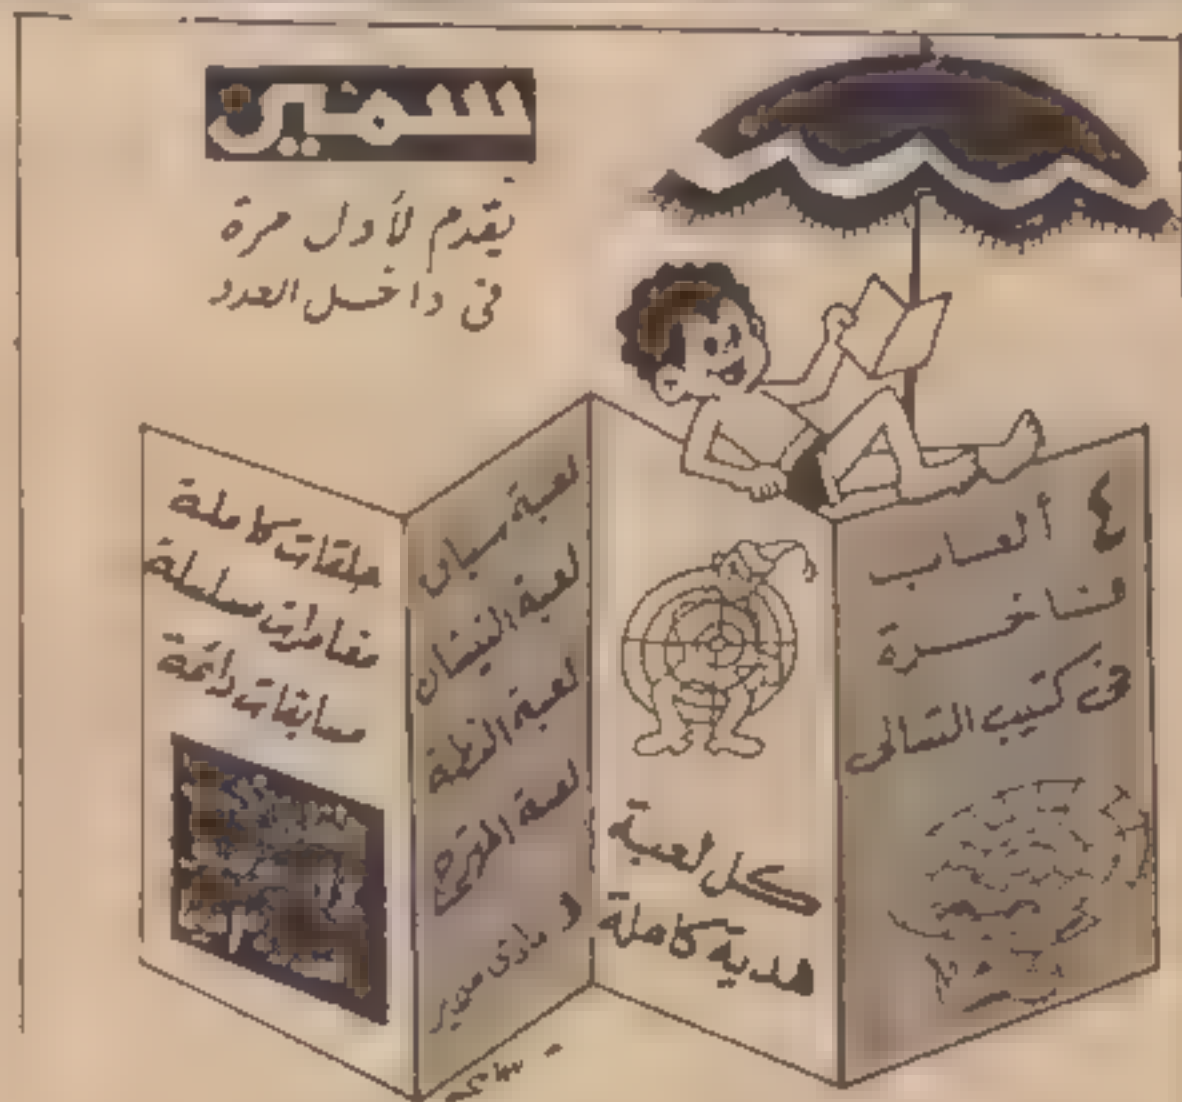 سمير
يقدم لأول مرة
فى داخل العدد
٤ ألعاب
فاخرة
فى كتيب التسالى
كل لعبة
هدية كاملة
لعبة
لعبة النيشان
لعبة
لعبة
حلقات كاملة
مغامرات سلسلة
مسابقات رائعة